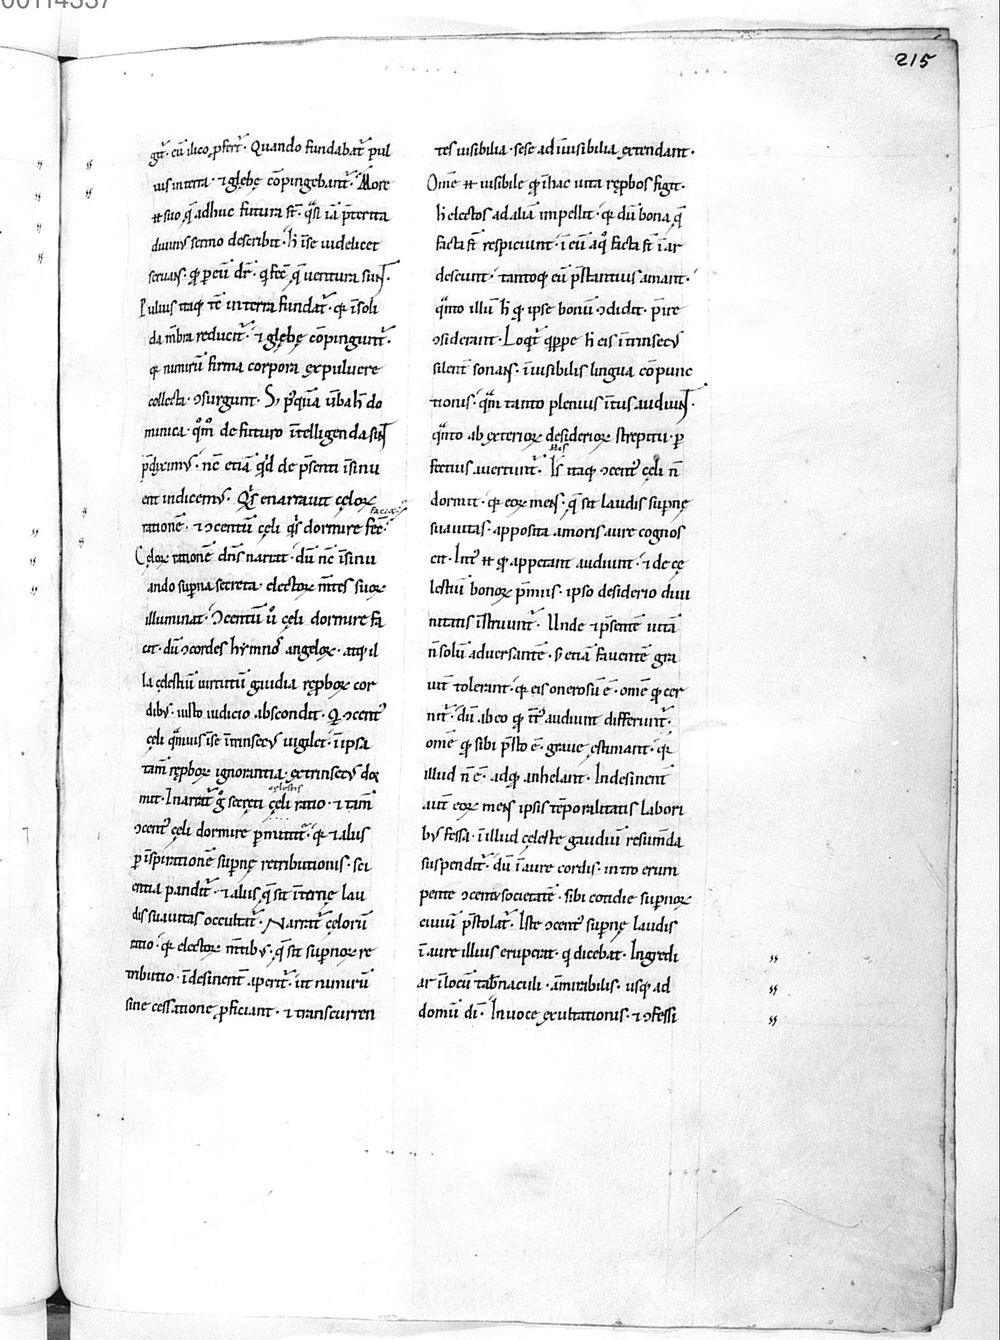 00114337
215
git᷑. cū ilico ꝓfert᷑. Quando fundabat᷑ pul
uis in terra. ⁊ glębę cōpingebant᷑. More
ħ suo q̄ adhuc futura sт̄. q̊si iā p̄terita
diuinus sermo describit. h̄ in se uidelicet
seruans. qđ ꝑ eū dr̄. q fec̄ q̄ uentura sunt.
Puluis itaq; tc̄ in terra fundat᷑. q̨ in soli
da mēbra reducit᷑. ⁊ glębę cōpingunt᷑.
q̨ nimirū firma corpora ex puluere
collecta ɔsurgunt. S; postquā uerba h̄ do
minica. qm̄ de futuro intelligenda sint
p̄diximus. nc̄ etiā qđ de p̄senti insinu
ent indicemus. Qis enarrauit cęloꝝ
rationē. ⁊ ɔcentū cęli qis dormire fec̄.
faciet
Cęloꝝ rationē dn̄s narrat. dū nc̄ insinu
ando supna secreta. electoꝝ mētes suoꝝ
illuminat. Ɔcentū ů cęli dormire fa
cit. dū ɔcordes hymnos angeloꝝ. atq; il
la cęlestiū uirtutū gaudia reproboꝝ cor
dibus. iusto iudicio abscondit. Qui ɔcentus
cęli quis in se intrinsecus uigilet. in ipsa
tam̄ reproboꝝ ignorantia. extrinsecus dor
mit. Inarrat᷑ g̊ secreti cęli ratio. ⁊ tam̄
cęlestis
ɔcentus cęli dormire p̄mittit᷑. q̨ ⁊ aliis
ꝑ inspirationē supnę retributionis. sci
entia pandit᷑. ⁊ aliis q̄ sit internę lau
dis suauitas occultat᷑. Narrat᷑ cęlorū
ratio. q̨ electoꝝ mētibus. q̄ sit supnoꝝ re
tributio. indesinent᷑ aperit᷑. ut nimirū
sine cessatione ꝓficiant. ⁊ transcurren
tes uisibilia. sese ad inuisibilia extendant.
Omē ħ uisibile qđ in hac uita reprobos figit.
h̄ electos ad alia impellit. q̨ dū bona q̄
facta sт̄ respiciunt. in eū a quo facta sт̄ inar
descunt. tantoq; eū p̄stantius amant.
quanto illū h̄ qđ ipse bonū ɔdidit. p̄ire
ɔsiderant. Loquit᷑ quppe h̄ eis intrinsecus
silent᷑ sonans. inuisibilis lingua cōpunc
tionis. quā tanto plenius intus audiunt.
quanto ab exterioꝝ desidorioꝝ strepitu. ꝑ
fectius auertunt᷑. Istis itaq; ɔcentus cęli n̄
dormit. q̨ eoꝝ mens. q̄ sit laudis supnę
suauitas. apposita amoris aure cognos
cit. Intus ħ qđ appetant audiunt. ⁊ de cę
lestiū bonoꝝ p̄miis. ipso desiderio diui
nitatis instruunt᷑. Unde ⁊ p̄sentē uitā
n̄ solū aduersantē. s; etiā fauentē gra
uit᷑ tolerant. q̨ eis onerosū ē. omē qđ cer
nit᷑. dū ab eo qđ int᷑ audiunt differunt᷑.
omē qđ sibi p̄sto ē. graue ęstimant. q̨
illud n̄ ē. ad qđ anhelant. Indesinent᷑
aut̄ eoꝝ mens ipsis tēporalitatis labori
bus fessa. in illud cęleste gaudiū resumēda
suspendit᷑. dū in aure cordis. intro erum
pente ɔcentu societatē. sibi cotidie supnoꝝ
ciuiū p̄stolat᷑. Iste ɔcentus supnę laudis
in aure illius eruperat. q dicebat. Ingredi
ar in locū tabnaculi. āmirabilis. usq; ad
domū di. In uoce exultationis. ⁊ ɔfessi